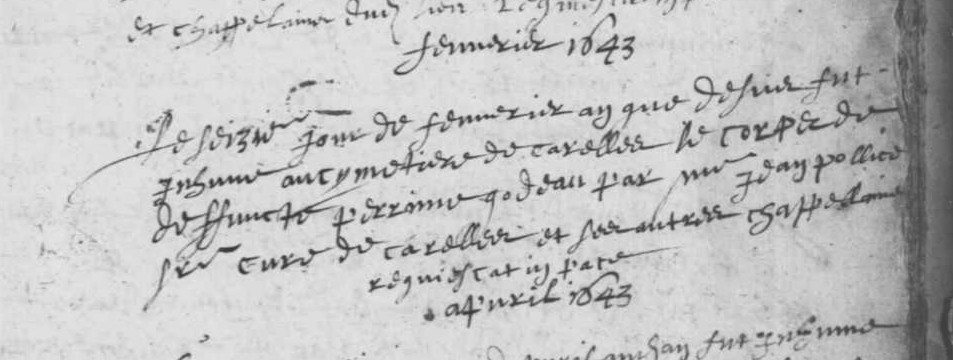 et chappelains dud lieu Requiescat
febvrier 1643
Le seiziesme jour de febvrier an que dessus fut
inhumé au cymetiere de carelles le corps de
deffuncte perrinne godeau par me Jean pollice
pbre curé de carelles et ses autres chappelains
requiescat in pace
apvril 1643
apvril aud an fut inhumé